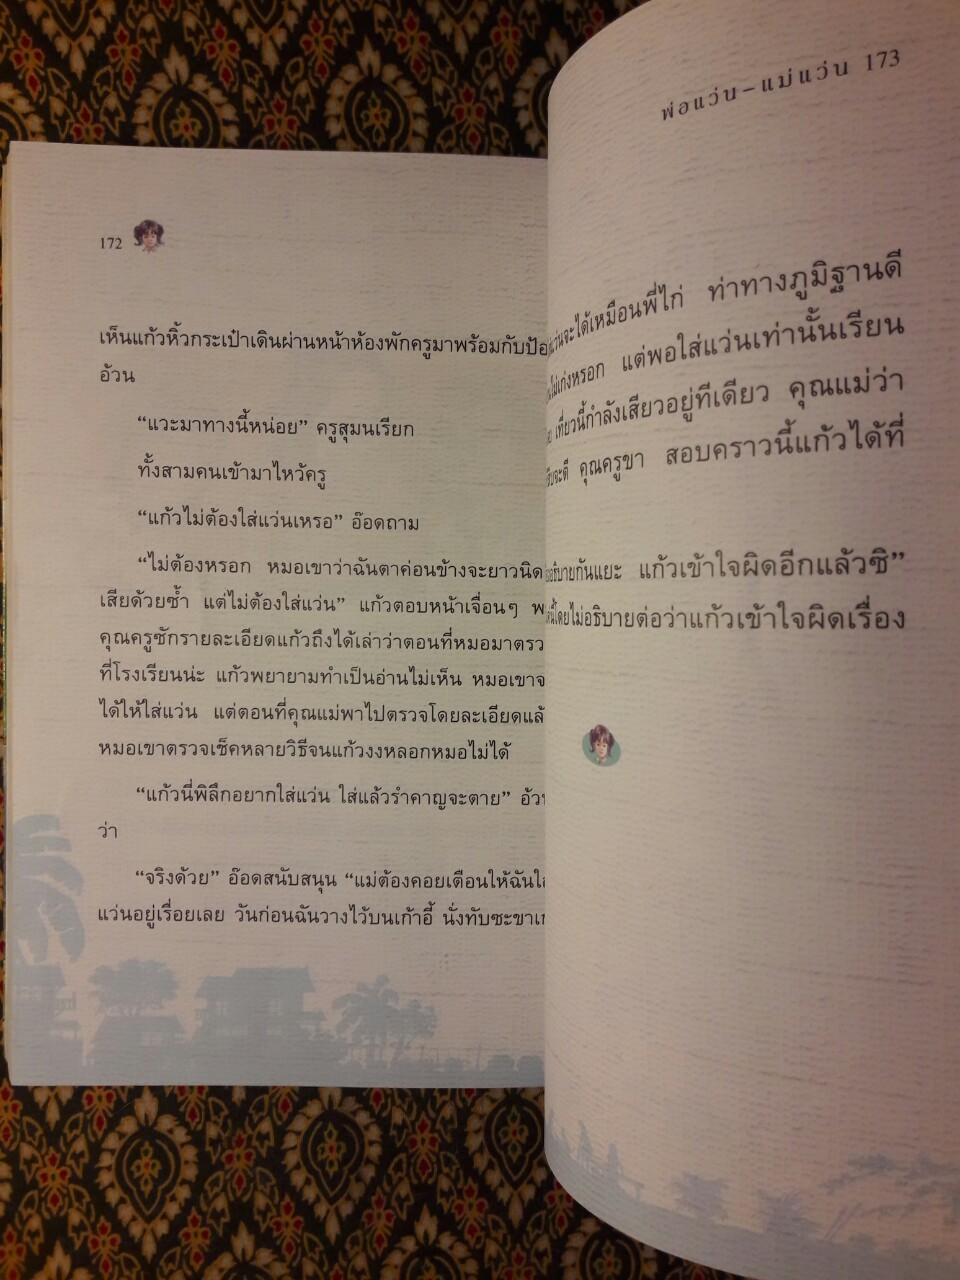 172
เห็นแก้วหิ้วกระเป๋าเดินผ่านหน้าห้องพักครูมาพร้อมกับป้อ
อ้วน
“แวะมาทางนี้หน่อย” ครูสุมนเรียก
ทั้งสามคนเข้ามาไหว้ครู
“แก้วไม่ต้องใส่แว่นเหรอ” อ๊อดถาม
“ไม่ต้องหรอก หมอเขาว่าฉันตาค่อนข้างจะยาวนิด
เสียด้วยซ้ำ แต่ไม่ต้องใส่แว่น” แก้วตอบหน้าเจื่อนๆ พ
คุณครูซักรายละเอียดแก้วถึงได้เล่าว่าตอนที่หมอมาตรว
ที่โรงเรียนน่ะ แก้วพยายามทำเป็นอ่านไม่เห็น หมอเขาจ
ได้ให้ใส่แว่น แต่ตอนที่คุณแม่พาไปตรวจโดยละเอียดแล้
หมอเขาตรวจเช็คหลายวิธีจนแก้วงงหลอกหมอไม่ได้
“แก้วนี่พิลึกอยากใส่แว่น ใส่แล้วรำคาญจะตาย” อ้วน
ว่า
“จริงด้วย” อ๊อดสนับสนุน “แม่ต้องคอยเตือนให้ฉันใส
แว่นอยู่เรื่อยเลย วันก่อนฉันวางไว้บนเก้าอี้ นั่งทับซะขาเ
พ่อแว่น–แม่แว่น 173
จะได้เหมือนพี่ไก่ ท่าทางภูมิฐานดี
ไม่เก่งหรอก แต่พอใส่แว่นเท่านั้นเรียน
เที่ยวนี้กำลังเสียวอยู่ทีเดียว คุณแม่ว่า
จะดี คุณครูขา สอบคราวนี้แก้วได้ที่
อธิบายกันแยะ แก้วเข้าใจผิดอีกแล้วซิ”
โดยไม่อธิบายต่อว่าแก้วเข้าใจผิดเรื่อง